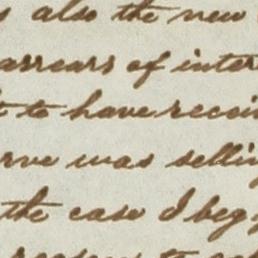 also the new
arrears of inter
to have recei
rve was sellin
the case I beg